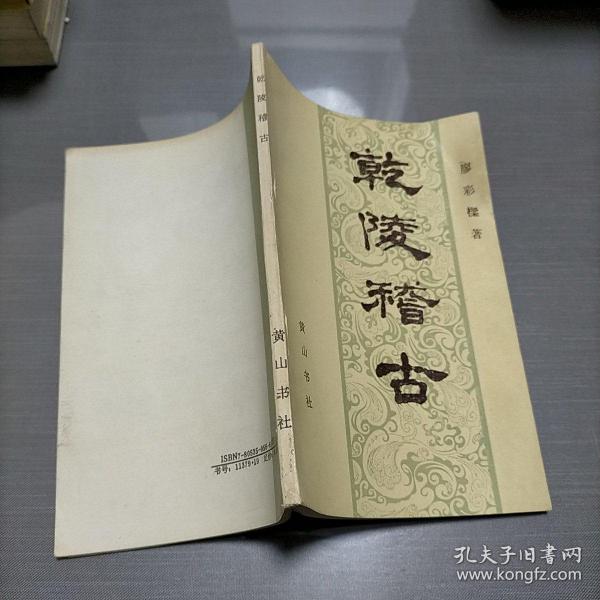 乾陵稽古
廖彩樑 著
黄山书社
乾陵稽古
黄山书社
ISBN7-80535-
书号：11379·10
孔夫子旧书网
www.kongfz.com